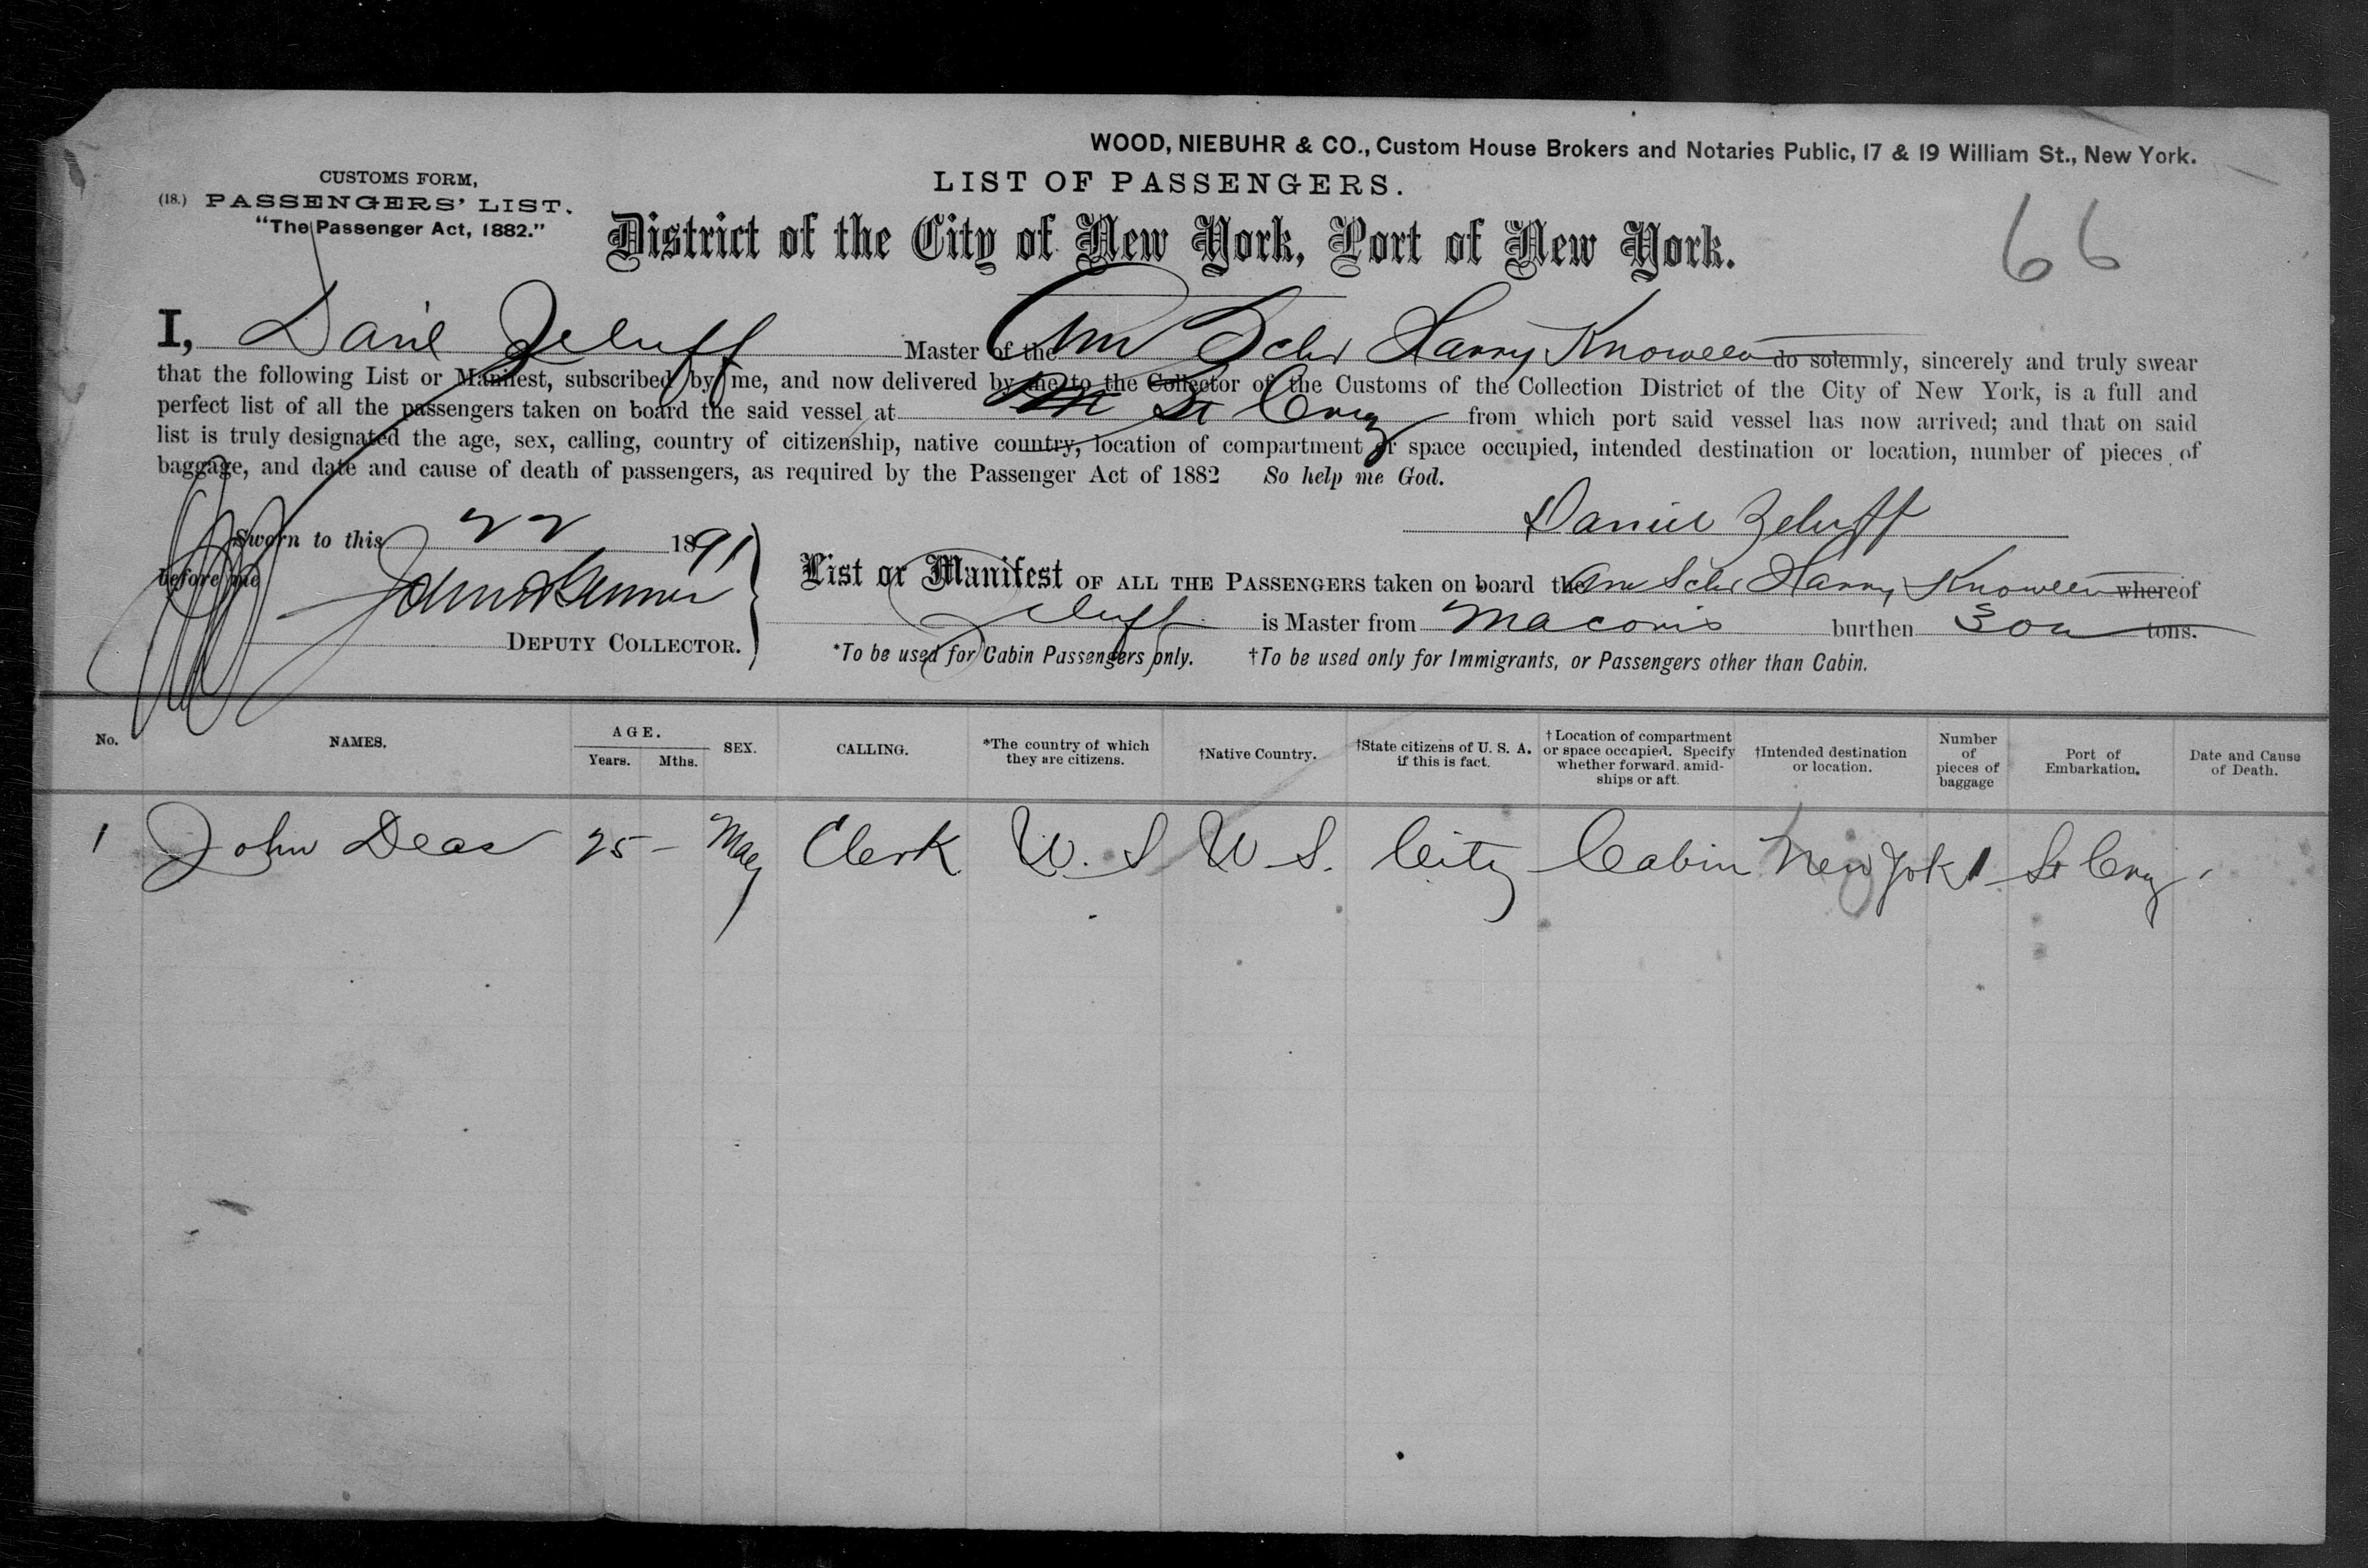 WOOD, NIEBUHR & CO., Custom House Brokers and Notaries Public, 17 & 19 William St., New York.
CUSTOMS FORM,
(18.) PASSENGERS' LIST.
"The Passenger Act, 1882."
LIST OF PASSENGERS.
District of the City of New York, Port of New York.
66
I, Danl Zeluff Master of the Am Schr Harry Knowlen do solemnly, sincerely and truly swear
that the following List or Manifest, subscribed by me, and now delivered by me to the Collector of the Customs of the Collection District of the City of New York, is a full and
perfect list of all the passengers taken on board the said vessel at St Croix from which port said vessel has now arrived; and that on said
list is truly designated the age, sex, calling, country of citizenship, native country, location of compartment or space occupied, intended destination or location, number of pieces of
baggage, and date and cause of death of passengers, as required by the Passenger Act of 1882 So help me God.
Daniel Zeluff
Sworn to this 22 1891
before me
DEPUTY COLLECTOR.
List or Manifest OF ALL THE PASSENGERS taken on board the Am Schr Harry Knowlen whereof
Zeluff is Master from Macoris burthen tons.
*To be used for Cabin Passengers only. †To be used only for Immigrants, or Passengers other than Cabin.
No. NAMES. AGE. Years. Mths. SEX. CALLING. *The country of which they are citizens. †Native Country. †State citizens of U. S. A. if this is fact. †Location of compartment or space occupied. Specify whether forward, amid-ships or aft. †Intended destination or location. Number of pieces of baggage Port of Embarkation. Date and Cause of Death.
1 John Deas 25 – Clerk U. S U S. City Cabin New York 1 St Croix